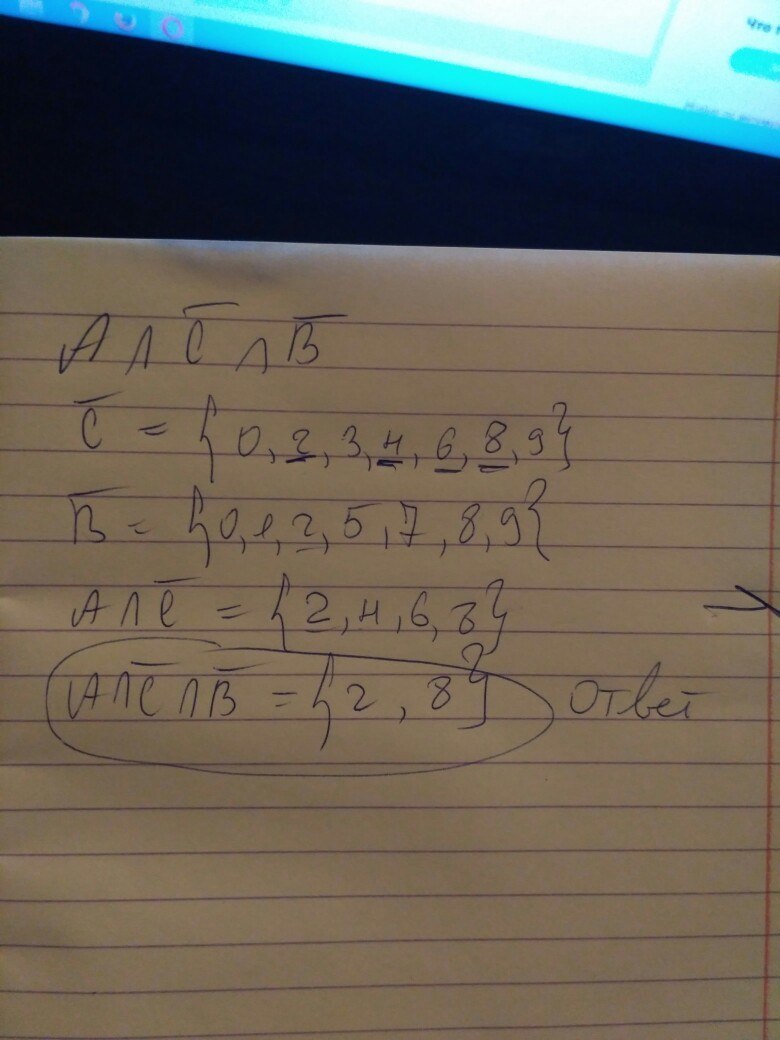 Что
A ∩ C̅ ∩ B̅
C̅ = {0, 2, 3, 4, 6, 8, 9}
B̅ = {0, 1, 2, 5, 7, 8, 9}
A ∩ C̅ = {2, 4, 6, 8}
A ∩ C̅ ∩ B̅ = {2, 8} Ответ